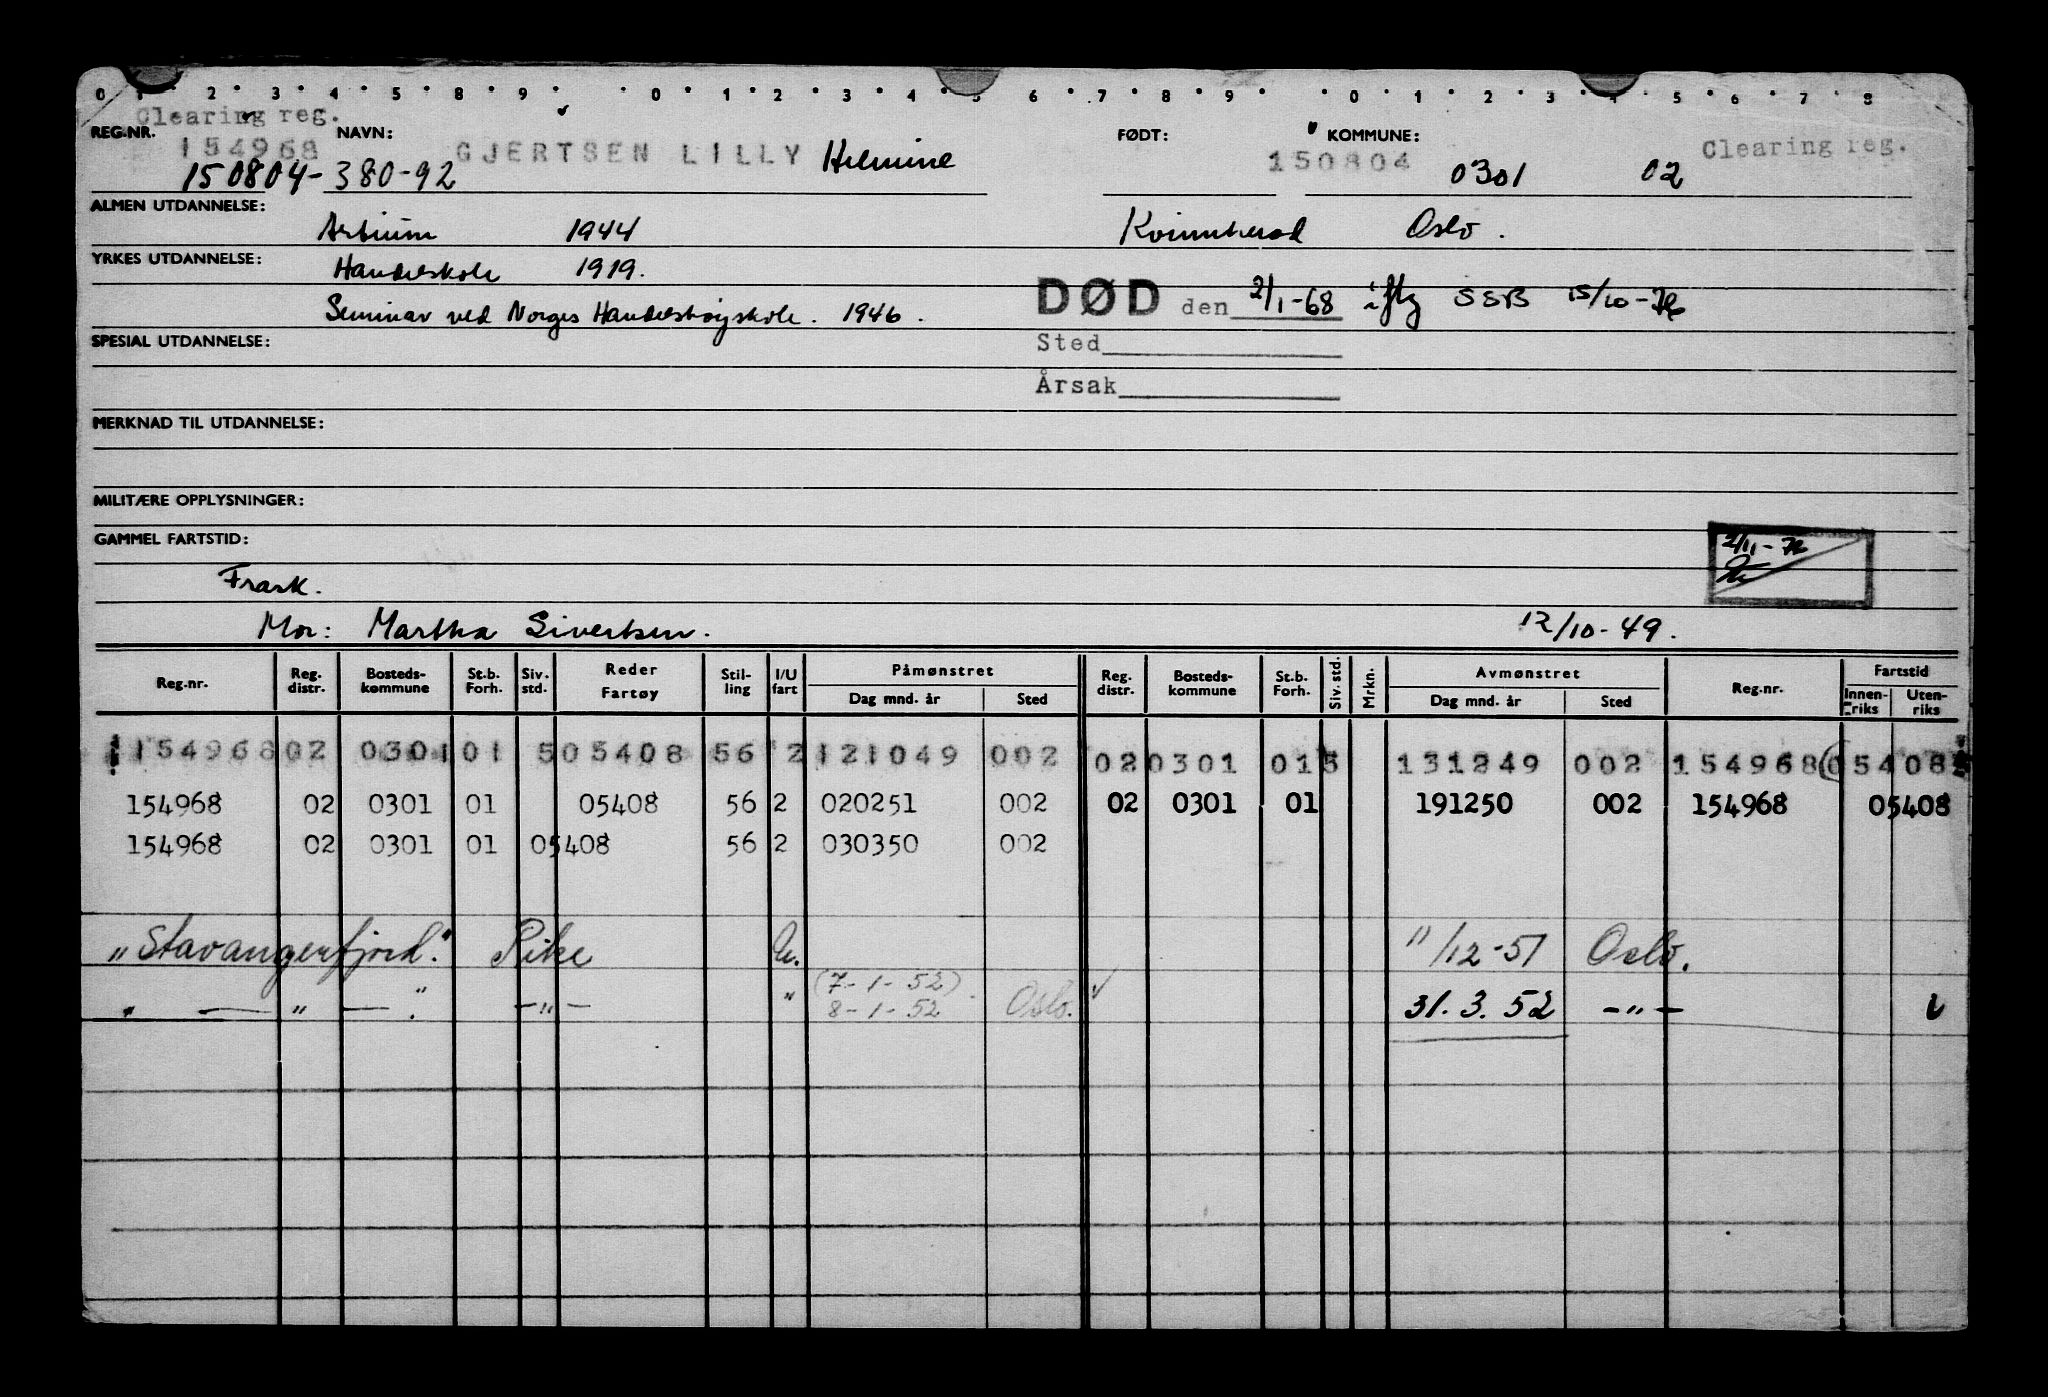 0 1 2 3 4 5 8 9 0 1 2 3 4 5 6 7 8 9 0 1 2 3 4 5 6 7 8
Clearing reg.
REG.NR. NAVN: FØDT: KOMMUNE: Clearing reg.
154968 GJERTSEN LILLY Helmine 150804
150804-380-92 0301 02
ALMEN UTDANNELSE:
Artium 1944 Kvinnherad Oslo.
YRKES UTDANNELSE: Handelskole 1919.
Seminar ved Norges Handelshøyskole. 1946. DØD den 2/1-68 iflg SSB 15/10-72
SPESIAL UTDANNELSE: Sted
Årsak
MERKNAD TIL UTDANNELSE:
MILITÆRE OPPLYSNINGER:
GAMMEL FARTSTID: 2/11-72
Frask.
Mor: Martha Sivertsen. 12/10-49.
Reg.nr. Reg. distr. Bosteds-kommune St.b. Forh. Siv. std. Reder Fartøy Stil-ling I/U fart Påmønstret Dag mnd. år Sted Reg. distr. Bosteds-kommune St.b. Forh. Siv. std. Mrkn. Avmønstret Dag mnd. år Sted Reg.nr. Fartstid Innen-riks Uten-riks
154968 02 0301 01 5 05408 56 2 121049 002 02 0301 01 5 131249 002 154968 05408
154968 02 0301 01 05408 56 2 020251 002 02 0301 01 191250 002 154968 05408
154968 02 0301 01 05408 56 2 030350 002
"Stavangerfjord." Pike U. 11/12-51 Oslo.
" — " — " — " — " (7-1-52) 8-1-52 Oslo. ✓ 31.3.52 — " — ✓